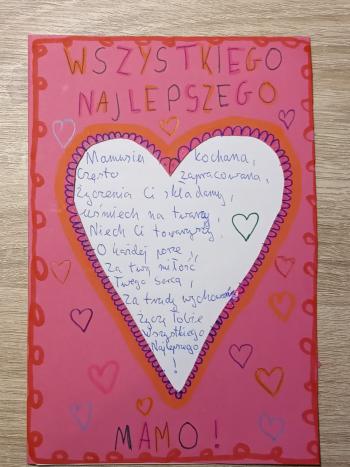 WSZYSTKIEGO
NAJLEPSZEGO
Mamusia kochana,
często zapracowana,
Życzenia Ci składamy,
uśmiech na twarzy,
Niech Ci towarzyszy,
O każdej porze,
Za twą miłość
Twego serca,
Za trudy wychowania
Życzę Tobie
Wszystkiego
Najlepszego
!
MAMO!